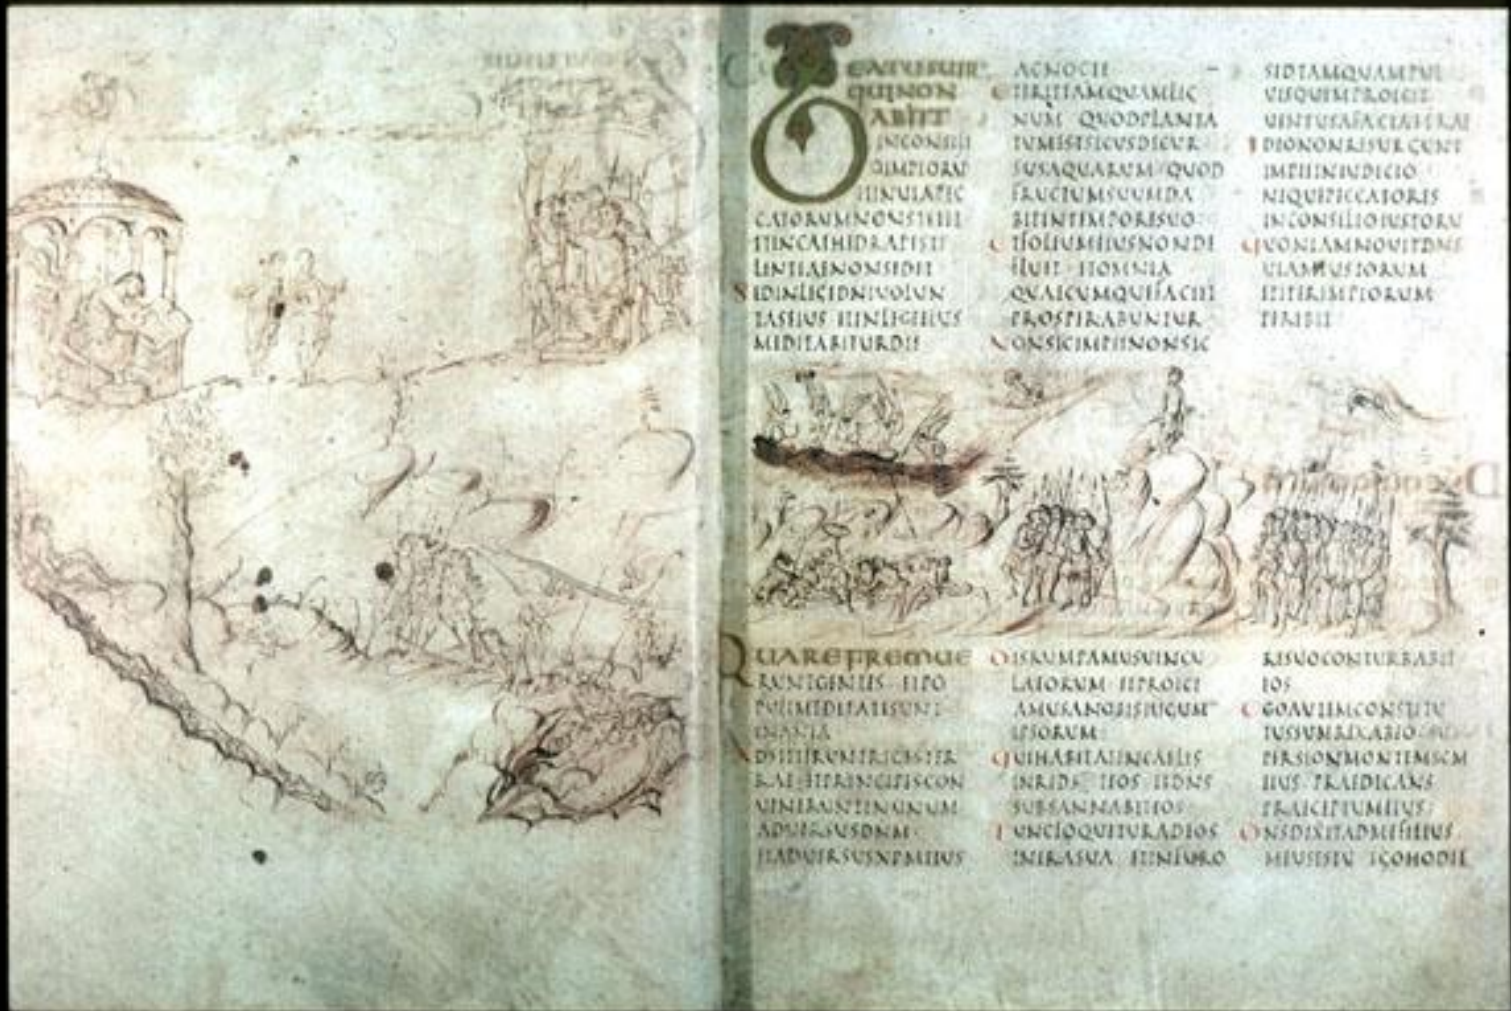 BEATUSUIR
QUINON
ABIIT
INCONSILI
OIMPIORU
ETINUIAPEC
CATORUMNONSTETIT
ETINCATHEDRAPESTI
LENTIAENONSEDIT
SEDINLEGEDNIUOLUN
TASEIUS ETINLEGEEIUS
MEDITABITURDIE
ACNOCTE
ETERITTAMQUAMLIG
NUM QUODPLANTA
TUMESTSECUSDECUR
SUSAQUARUM QUOD
FRUCTUMSUUMDA
BITINTEMPORESUO
ETFOLIUMEIUSNONDE
FLUET ETOMNIA
QUAECUMQUEFACIET
PROSPERABUNTUR
NONSICIMPIINONSIC
SEDTAMQUAMPUL
UISQUEMPROICIT
UENTUSAFACIETERRAE
IDEONONRESURGUNT
IMPIIINIUDICIO
NEQUEPECCATORES
INCONSILIOIUSTORU
QUONIAMNOUITDNS
UIAMIUSTORUM
ETITERIMPIORUM
PERIBIT
QUAREFREMUE
RUNTGENTES ETPO
PULIMEDITATISUNT
INANIA
ADSTITERUNTREGESTER
RAE ETPRINCIPESCON
UENERUNTINUNUM
ADUERSUSDNM
ETADUERSUSXPMEIUS
DISRUMPAMUSUINCU
LAEORUM ETPROICI
AMUSANOBISIUGUM
IPSORUM
QUIHABITATINCAELIS
INRIDEB EOS ETDNS
SUBSANNABITEOS
TUNCLOQUETURADEOS
INIRASUA ETINFURO
RESUOCONTURBABIT
EOS
EGOAUTEMCONSTITU
TUSSUMREXABEO
PERSIONMONTEMSCM
EIUS PRAEDICANS
PRAECEPTUMEIUS
DNSDIXITADMEFILIUS
MEUSESTU EGOHODIE